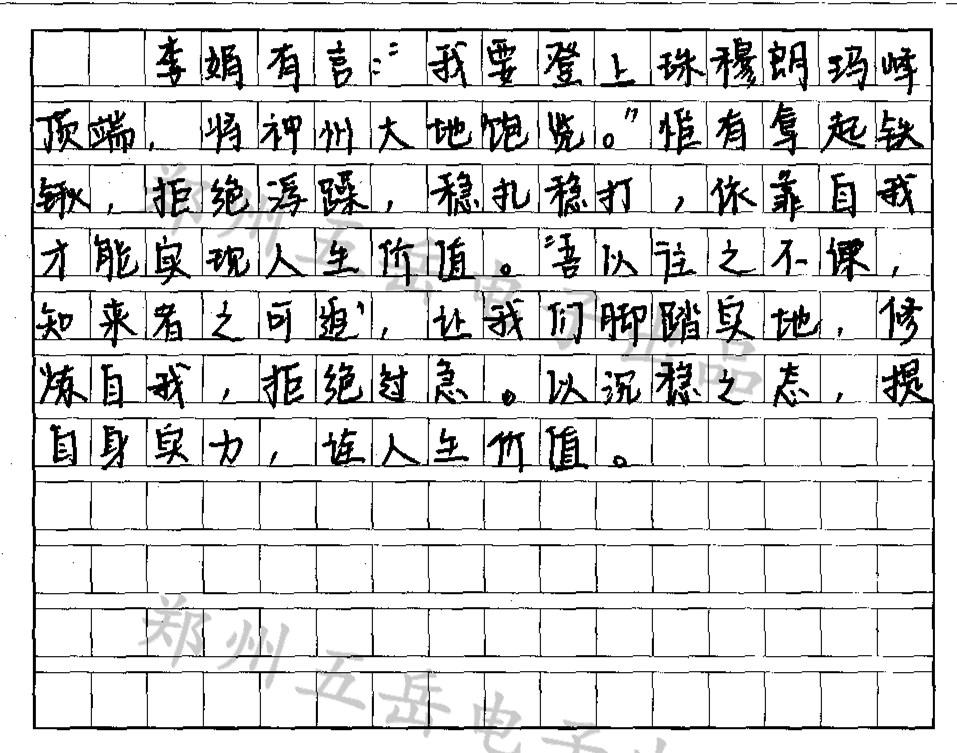 李娟有言：“我要登上珠穆朗玛峰
顶端，将神州大地饱览。”惟有拿起铁
锹，拒绝浮躁，稳扎稳打，依靠自我
才能实现人生价值。“悟以往之不谏，
知来者之可追”，让我们脚踏实地，修
炼自我，拒绝过急。以沉稳之态，提
自身实力，连人生价值。
郑州五岳电子
郑州五岳电子